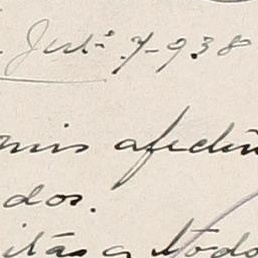 Jul: 7-938
mis afectu
dos.
itas a todo